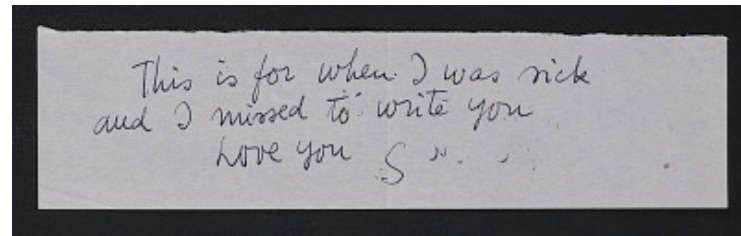 This is for when I was sick
and I missed to write you
Love you S